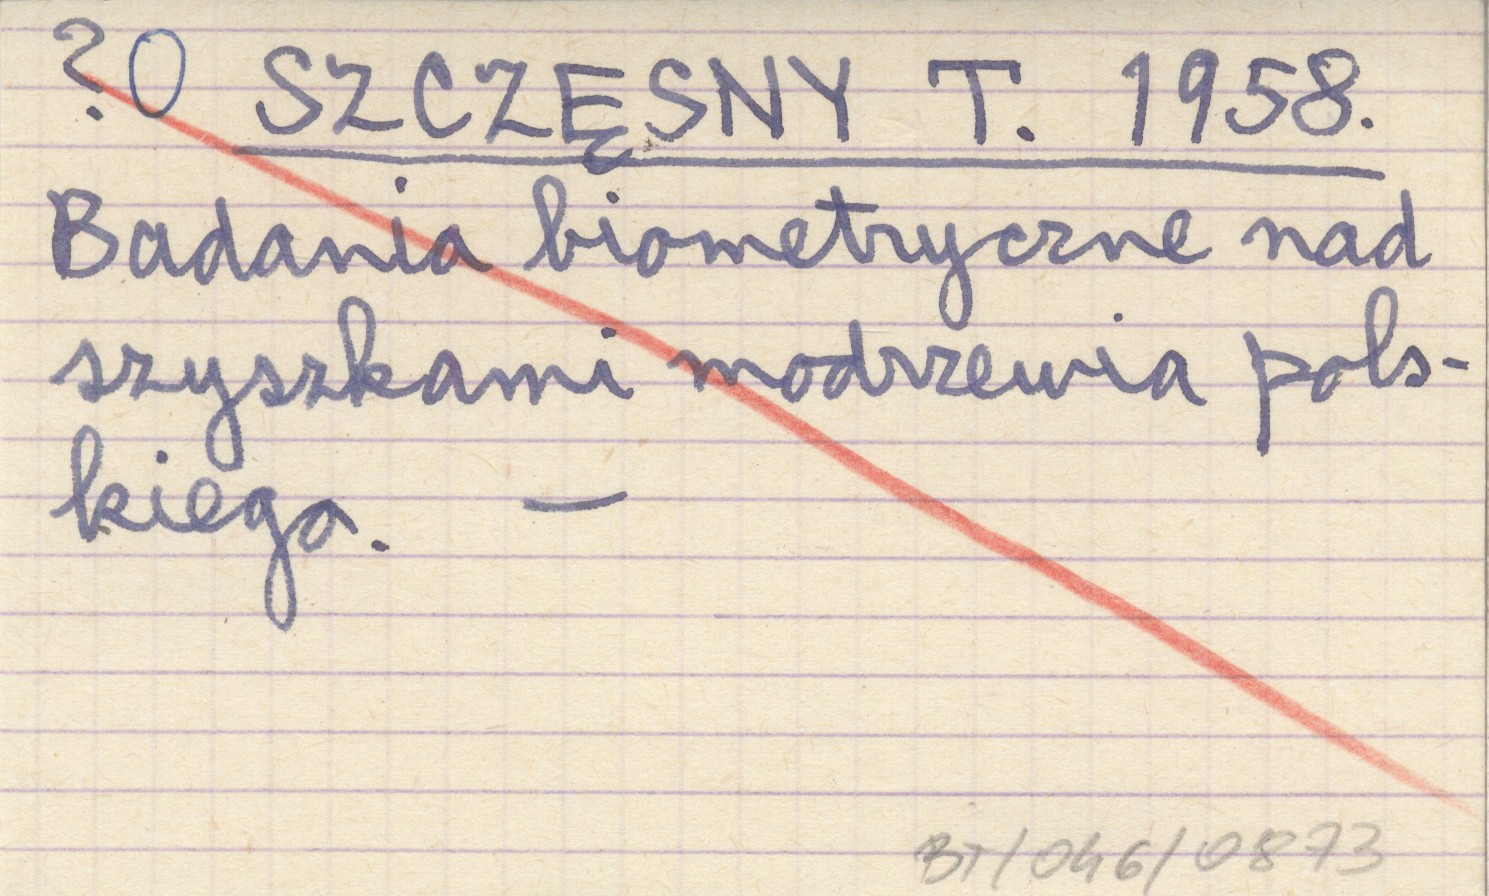 ? O SZCZĘSNY T. 1958.
Badania biometryczne nad
szyszkami modrzewia pols-
kiego. —
BT/046/0873